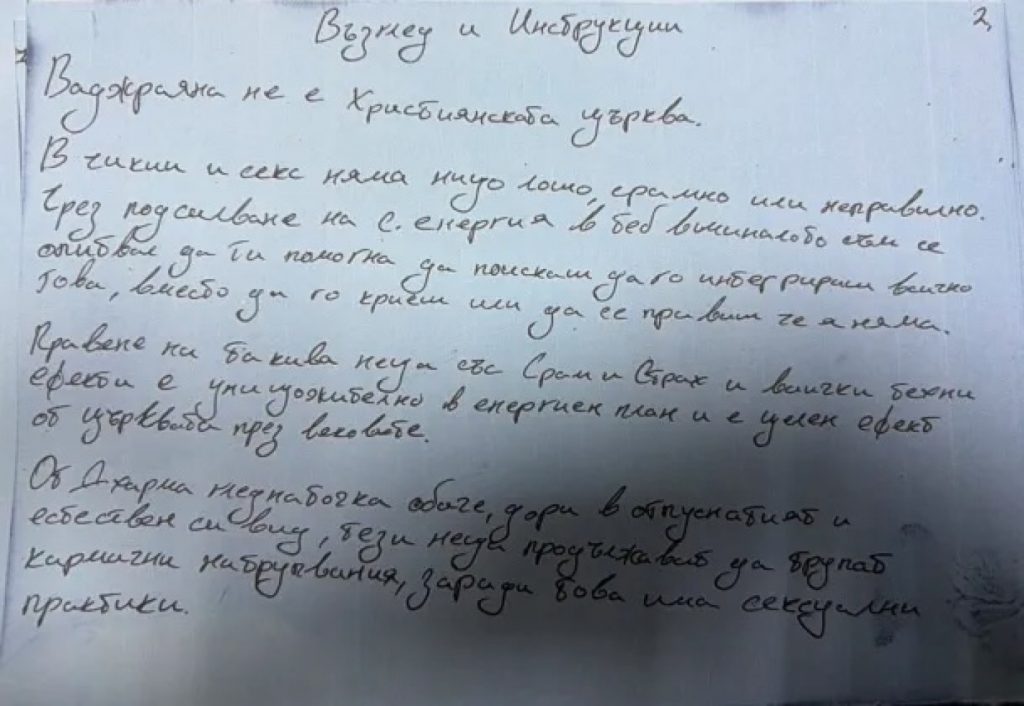 Възглед и Инструкции
2,
Ваджраяна не е Християнската църква.
В чикии и секс няма нищо лошо, срамно или неправилно.
Чрез подсилване на с. енергия в теб винаги съм се
опитвал да ти помогна да поискаш да го интегрираш всичко
това, вместо да го криеш или да се правиш че я няма.
Правене на такива неща със Срам и Страх и всички техни
ефекти е унищожително в енергиен план и е целен ефект
от църквата през вековете.
От Дхарма гледна точка обаче, дори в отпуснатият и
естествен си вид, тези неща продължават да трупат
кармични натрупвания, заради това има сексуални
практики.